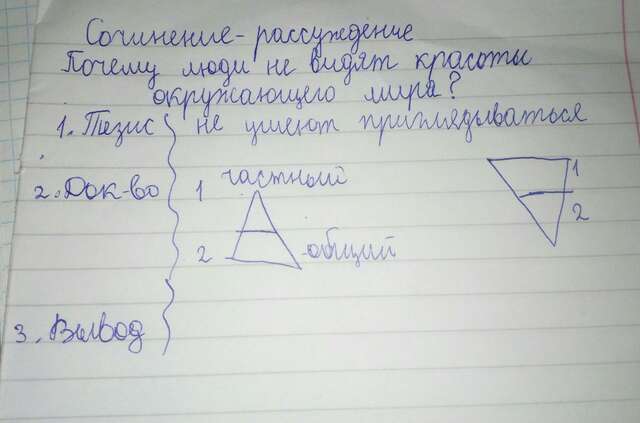 Сочинение-рассуждение
Почему люди не видят красоты
окружающего мира?
1. Тезис не умеют приглядываться
2. Док-во 1 частный 1
2 общий 2
3. Вывод